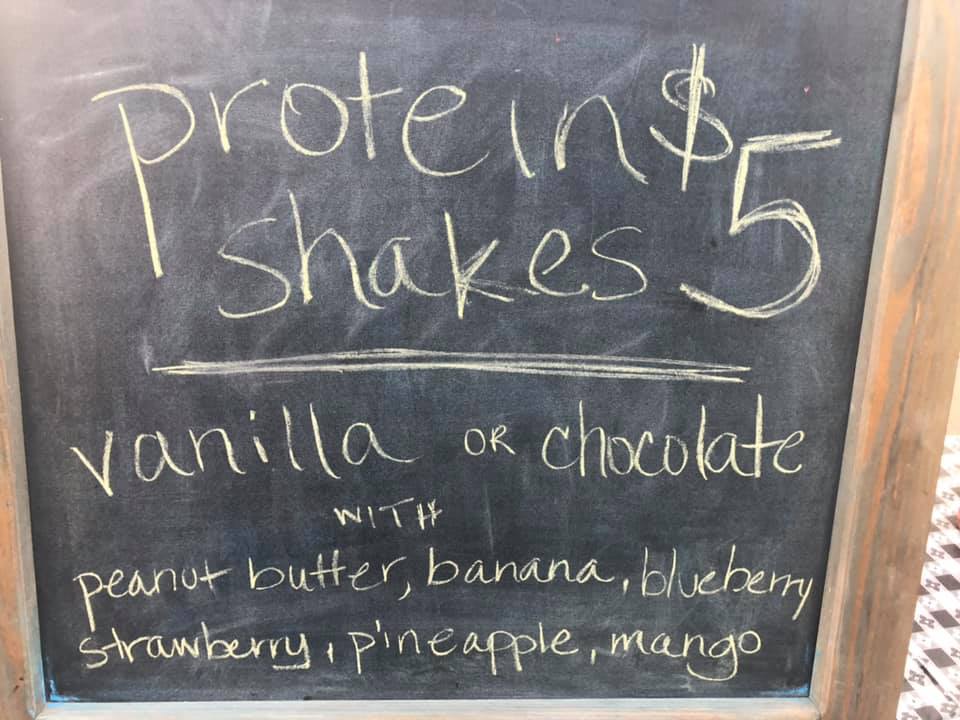 protein $5
shakes
vanilla OR chocolate
WITH
peanut butter, banana, blueberry
strawberry, pineapple, mango